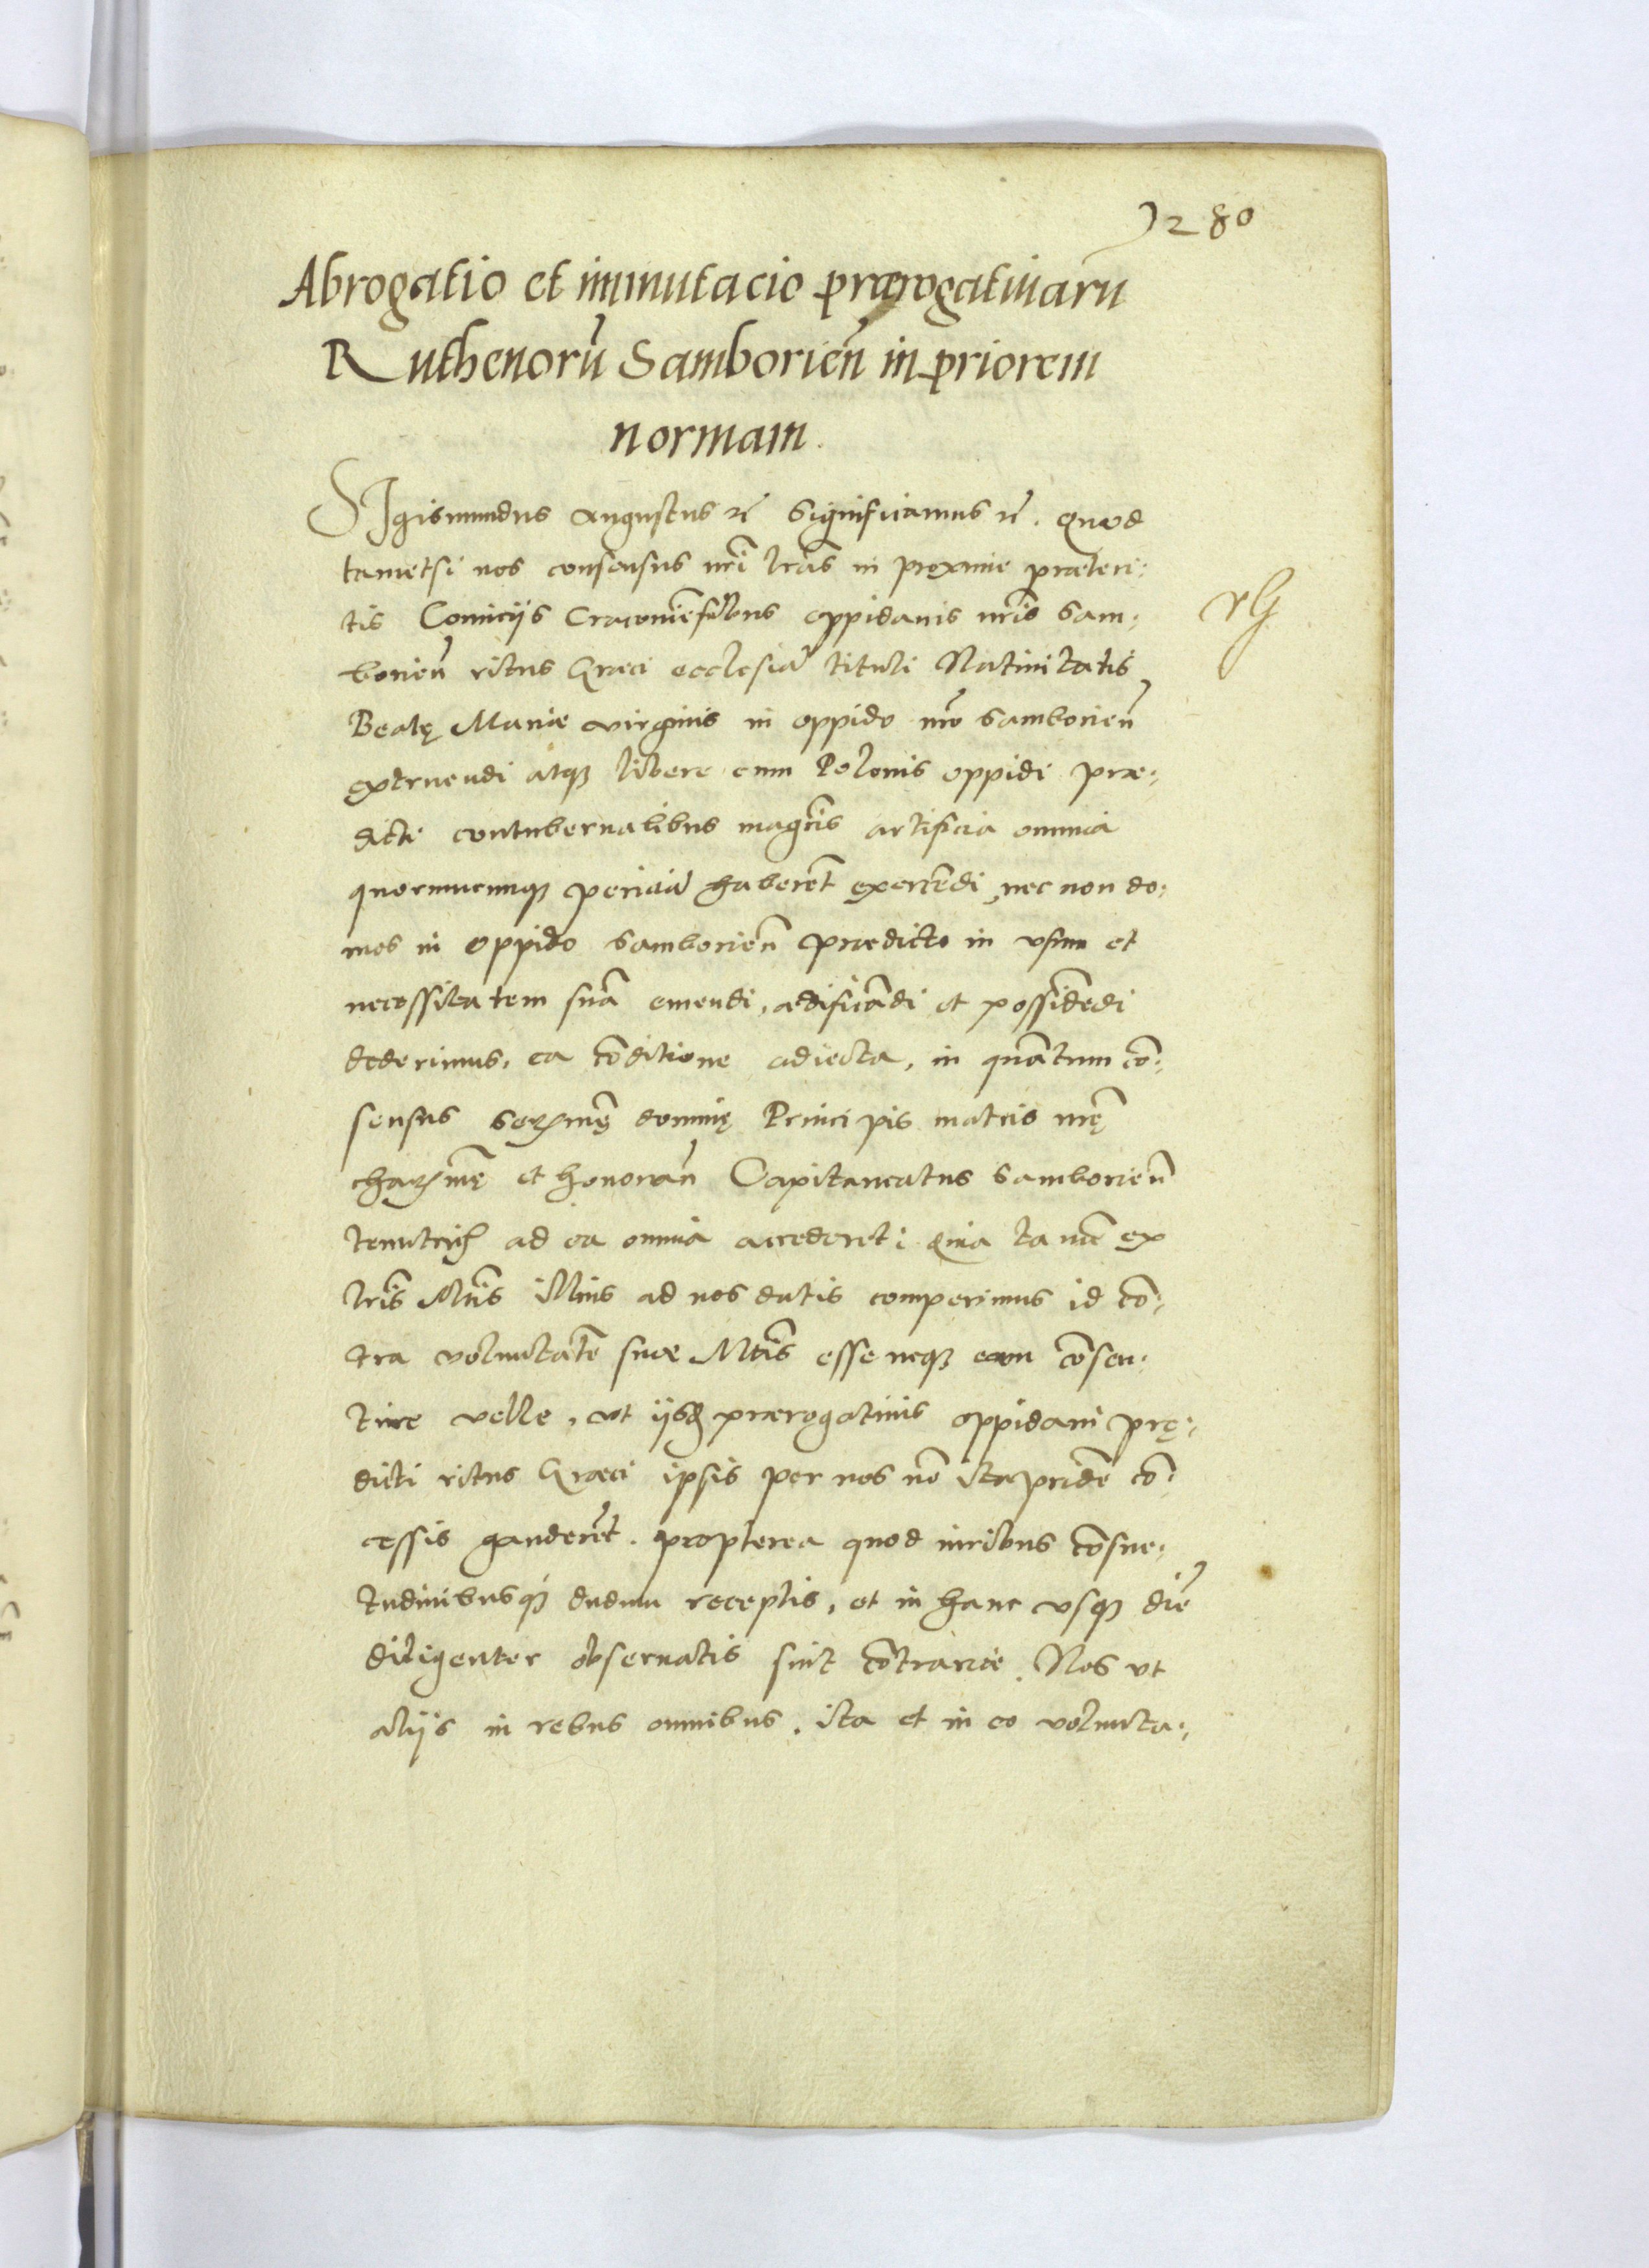 1280
Abrogatio et immutacio prærogativarū
Ruthenorū Samborieñ in priorem
normam.
SJgismundus Augustus rč Significamus rč. Quod
tametsi nos consensus nrī lrās in proxime præteri:
tis Comicijs Cracovieñsibus oppidanis nrīs Sam:
borieñ ritus Græci ecclesiā tituli Nativitatis
Beatę Mariæ virginis in oppido nrō Samborieñ
extruendi atqȝ libere cum Polonis oppidi præ:
dicti contubernalibus magrīs artificia omnia
quorumcunqȝ periciā haberēt exercēdi, nec non do:
mos in oppido Samborieñ prædicto in vsum et
necessitatem suā emendi, ædificādi et possidēdi
dederimus, ea cōditione adiecta, in quātum cō:
sensus Serᵐę dominę Principis matris nrę̄
charᵐę et honorañ Capitaneatus Samborieñ
tenutricis ad ea omnia accederet: Quia tamē ex
lrīs Mtīs illius ad nos datis comperimus id cō:
tra voluntatē suæ Mtīs esse neqȝ eam cōsen:
tire velle, vt ijsdē prærogativis oppidani prę:
dicti ritus Græci ipsis per nos nō ita pridē cō:
cessis gauderēt. propterea quod iuribus cōsue:
tudinibusqȝ dudum receptis, et in hanc vsqȝ diē
diligenter observatis sint cōtrariæ. Nos vt
alijs in rebus omnibus, ita et in eo volunta: